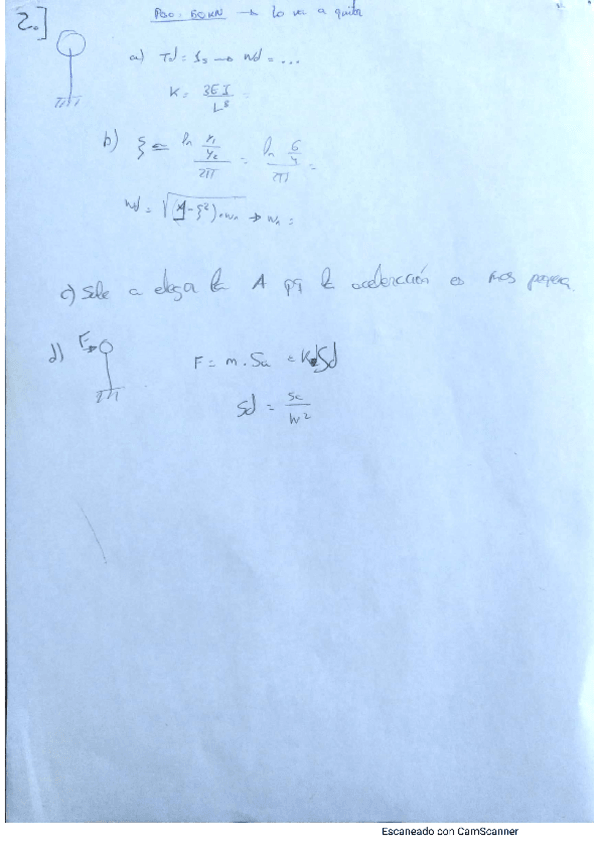 2.]
→ lo va a quitar
a) Td = 1s → Wd = ...
K = 3EI / L³ =
b) ξ = ln x1/x2 / 2π = ln 6/4 / 2π =
Wd = √(1-ξ²) · Wn → Wn =
c) Sale a elegir la A pq la aceleración es más pequeña.
d) F
F = m · Sa = K · Sd
Sd = Sa / W²
Escaneado con CamScanner